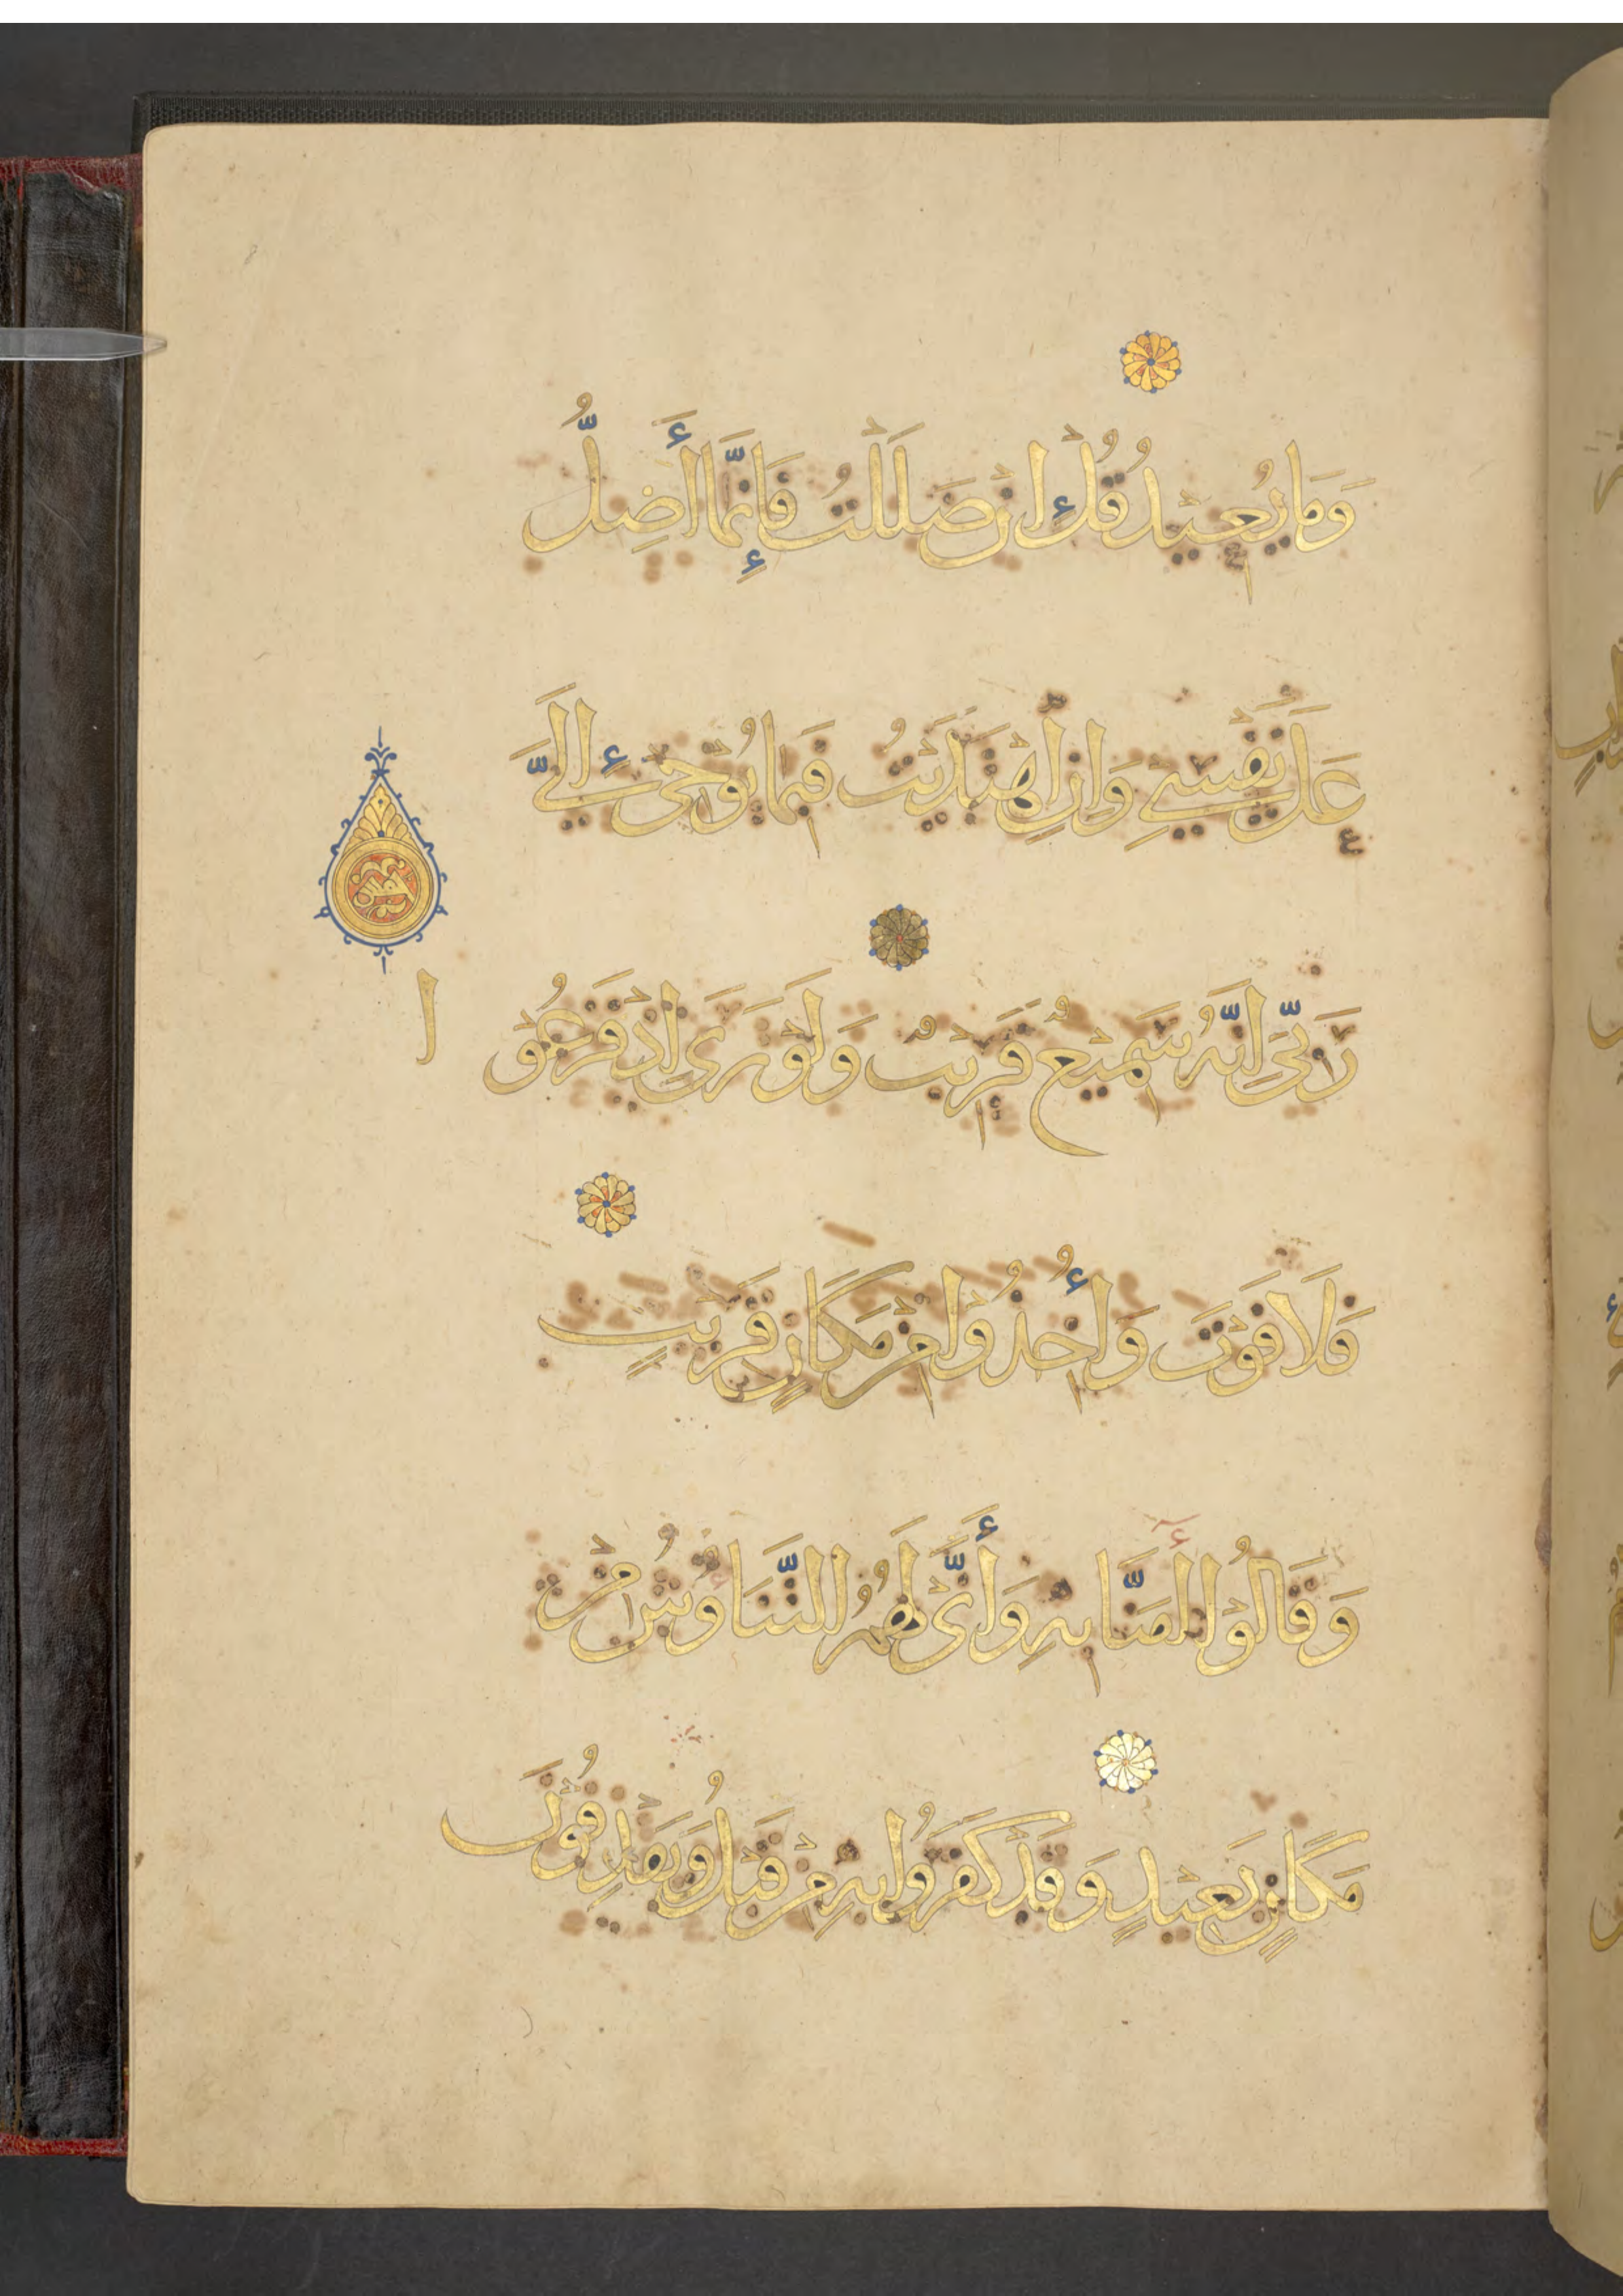 وَمَا يُعِيْدُ قُلْ اِنْ ضَلَلْتُ فَاِنَّمَا أَضِلُّ
عَلَى نَفْسِي وَاِنِ اهْتَدَيْتُ فَبِمَا يُوْحِىْ اِلَيَّ
رَبِّى اِنَّهُ سَمِيْعٌ قَرِيْبٌ وَلَوْ تَرَى اِذْ فَزِعُوْا
فَلَا فَوْتَ وَأُخِذُوْا مِنْ مَكَانٍ قَرِيْبٍ
وَقَالُوْا اٰمَنَّا بِهِ وَأَنَّى لَهُمُ التَّنَاوُشُ مِنْ
مَكَانٍ بَعِيْدٍ وَقَدْ كَفَرُوْا بِهِ مِنْ قَبْلُ وَيَقْذِفُوْنَ